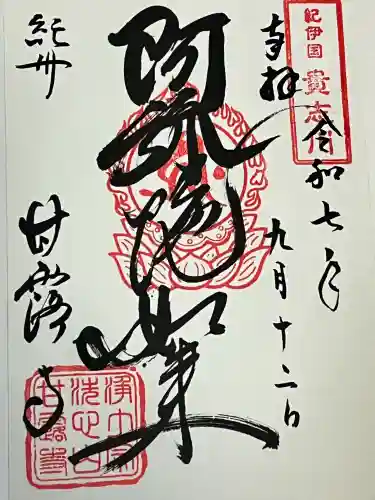 紀伊国 貴志
奉拝
令和七年
九月十二日
阿弥陀如来
紀州
甘露寺
浄土宗
甘露寺